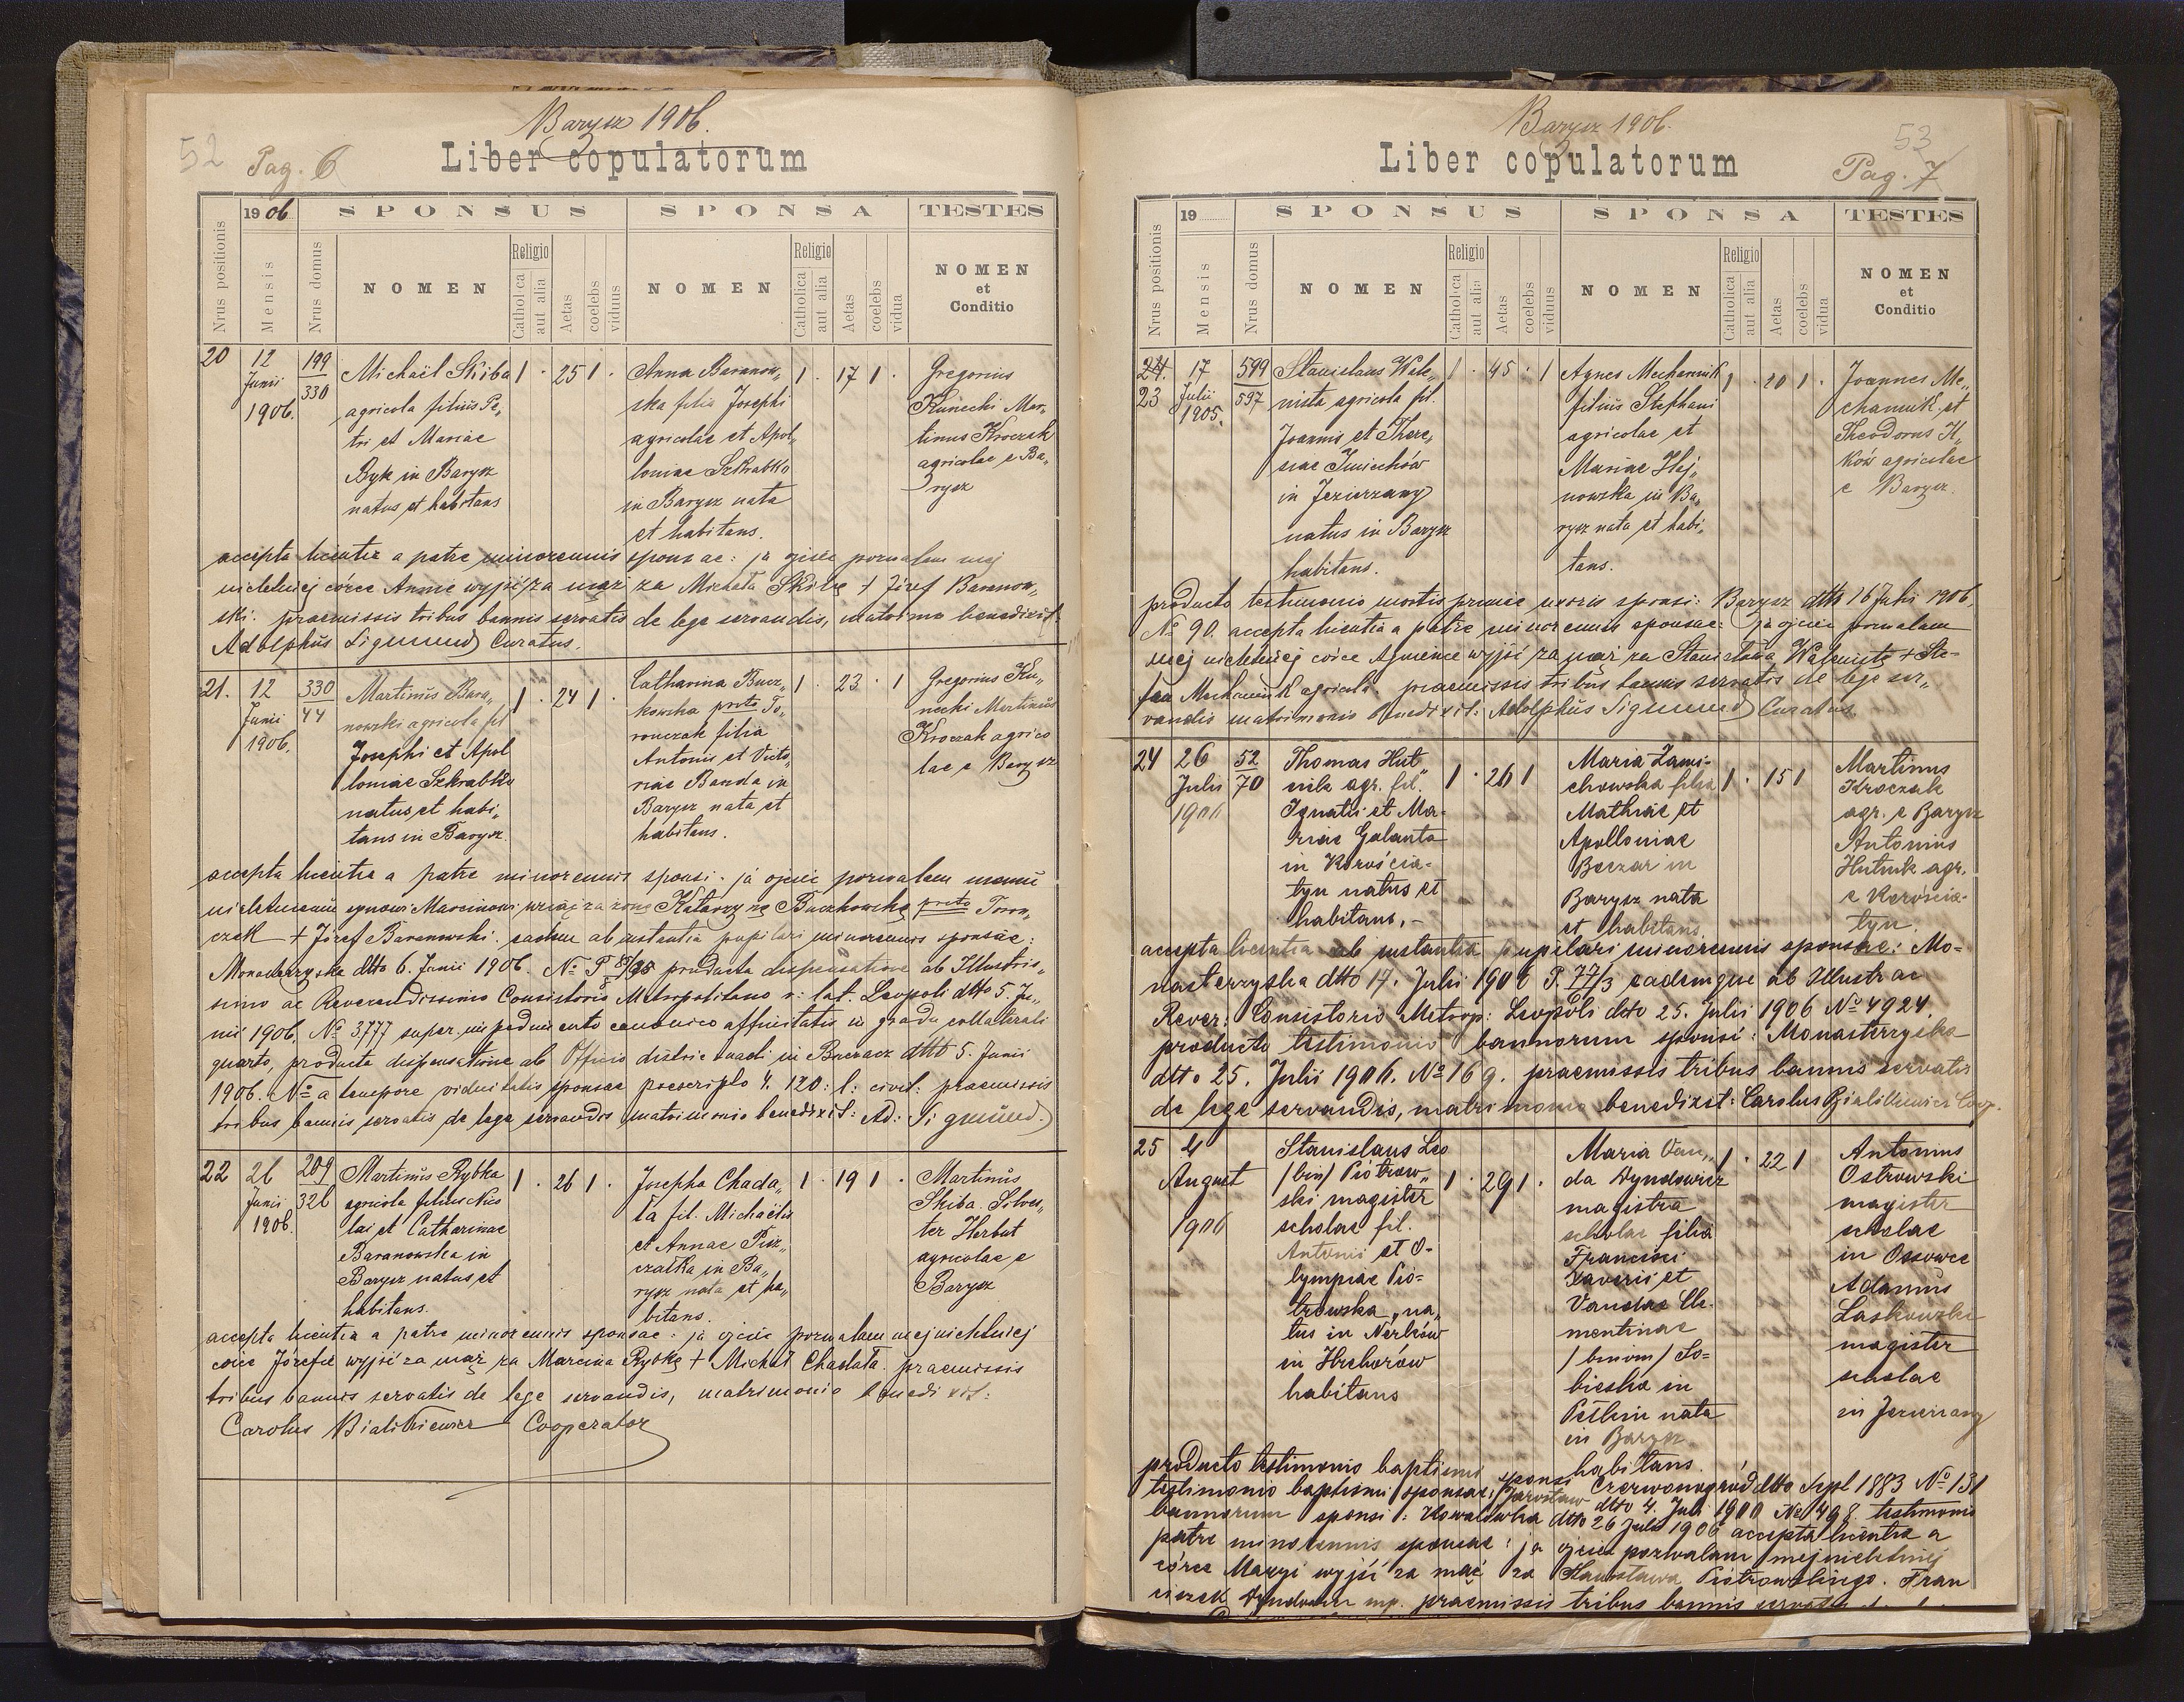 Barysz 1906.
Liber copulatorum
52
Pag. 6
1906
SPONSUS
SPONSA
TESTES
Nrus positionis
Mensis
Nrus domus
NOMEN
Religio
Catholica
aut alia
Aetas
coelebs
viduus
NOMEN
Religio
Catholica
aut alia
Aetas
coelebs
vidua
NOMEN
et
Conditio
20
12
Junii
1906.
199
330
Michaël Skiba
agricola filius Pe„
tri et Mariae
Byk in Barysz
natus et habitans
1 · 25 1 ·
Anna Baranow„
ska filia Josephi
agricolae et Apol„
loniae Szkrabko
in Barysz nata
et habitans.
1 · 17 1 ·
Gregorius
Kunecki Mar„
tinus Kroczak
agricolae e Ba„
rysz
accepta licentia a patre minorennis sponsae: ja ojciec pozwalam mej
nieletniej córce Annie wyjść za mąż za Michała Skibę + Józef Baranow„
ski. praemissis tribus bannis servatis de lege servandis, matrimo benedixit.
Adolphus Sigmund Curatus.
21.
12
Junii
1906.
330
44
Martinus Bara„
nowski agricola fil
Josephi et Apol
loniae Szkrabko
natus et habi„
tans in Barysz.
1 · 24 1 ·
Catharina Bucz„
kowska proto To„
ronczak filia
Antonii et Victo„
riae Banda in
Barysz nata et
habitans.
1 · 23 · 1
Gregorius Ku„
necki Martinus
Kroczak agrico
lae e Barysz
accepta licentia a patre minorennis sponsi. ja ojciec pozwalam memu
nieletniemu synowi Marcinowi wziąć za żonę Katarzynę Buczkowską proto Toron„
czek + Józef Baranowski. eadem ab instantia pupilari minorennis sponsae:
Monasterzyska dtto 6. Junii 1906. No P producta dispensatione ab Illustris„
simo ac Reverendissimo Consistorio Metropolitano r: lat. Leopoli dtto 5. Ju„
nii 1906. No 3777 super impedimento canonico affinitatis in gradu collaterali
quarto, producta dispensatione ab Officio districtuali in Buczacz dtto 5. Junii
1906. No a tempore viduitatis sponsae praescripto §. 120: l: civil: praemissis
tribus bannis servatis de lege servandis matrimonio benedixit: Ad: Sigmund.
22
26
Junii
1906.
209
326
Martinus Rybka
agricola filius Nico
lai et Catharinae
Baranowska in
Barysz natus et
habitans.
1 · 26 1 ·
Josepha Chada„
ła fil. Michaëlis
et Annae Pisz„
czatka in Ba„
rysz nata et ha„
bitans.
1 · 19 1 ·
Martinus
Skiba. Silves„
ter Herbut
agricolae e
Barysz
accepta licentia a patre minorennis sponsae: ja ojciec pozwalam mej nieletniej
córce Józefie wyjść za mąż za Marcina Rybkę + Michał Chadała. praemissis
tribus bannis servatis de lege servandis, matrimonio benedixit:
Carolus Bialikiewicz Cooperator
Barysz 1906.
Liber copulatorum
53
Pag. 7
19
SPONSUS
SPONSA
TESTES
Nrus positionis
Mensis
Nrus domus
NOMEN
Religio
Catholica
aut alia
Aetas
coelebs
viduus
NOMEN
Religio
Catholica
aut alia
Aetas
coelebs
vidua
NOMEN
et
Conditio
24.
23
17
Julii
1905.
599
597
Stanislaus Wale„
nista agricola fil.
Joannis et There„
siae
in Jezierzany
natus in Barysz
habitans.
1 · 45 · 1
Agnes Mechannik
filius Stephani
agricolae et
Mariae Hej„
nowska in Ba„
rysz nata et habi„
tans.
1 · 20 1 ·
Joannes Me„
channik et
Theodorus
ków agricolae
e Barysz.
producto testimonio mortis primae uxoris sponsi: Barysz dtto 16 Julii 1906.
No 90. accepta licentia a patre minorennis sponsae: ja ojciec pozwalam
mej nieletniej córce Agnieszce wyjść za mąż za Stanisława + Ste-
fan Mechannik agricola. praemissis tribus bannis servatis de lege ser„
vandis matrimonio benedixit: Adolphus Sigmund Curatus.
24
26
Julii
1906
52
70
Thomas Hut„
nik agr. fil.
Ignatii et Ma-
riae Galanta
in Korościa-
tyn natus et
habitans.-
1 · 26 1
Maria Zami-
chowska filia
Mathiae et
Apolloniae
Boczar in
Barysz nata
et habitans.
1 · 15 1
Martinus
Kroczak
agr. e Barysz
Antonius
Hutnik agr.
e Korościa-
tyn.
accepta licentia ab instantia pupilari minorennis sponsae: Mo-
nasterzyska dtto 17. Julii 1906 P. 77/3 eademque ab Illustr ac
Rever: Consistorio Metrop: Leopoli dtto 25. Julii 1906 No 4924.
producto testimonio bannorum sponsi: Monasterzyska
dtto 25. Julii 1906. No 169. praemissis tribus bannis servatis
de lege servandis, matrimonio benedixit: Carolus Bialikiewicz Coop.
25
4
August
1906
Stanislaus Leo
/bin/ Piotrow„
ski magister
scholae fil.
Antonii et O-
lympiae Pio-
trowska „na„
tus in Nerków
in Hrehorów
habitans
1 · 29 1 ·
Maria Van„
da Dyndowicz
magistra
scholae filia
Francisci
Xaverii et
Vandae Cle-
mentinae
/binom/ So-
bieska in
Petlin nata
in Barysz
habitans.
1 · 22 1
Antonius
Ostrowski
magister
scholae
in Ossowce
Adamus
Laskowski
magister
scholae
in Jezierzany
producto testimonio baptismi sponsi Czerwonogród dtto Sept 1883 No 131
testimonio baptismi sponsae: Jarosław dtto 4. Juli 1900 No 498. testimonio
bannorum sponsi: Kowalówka dtto 26 Julii 1906 accepta licentia a
patre minorennis sponsae: ja ojciec pozwalam mej nieletniej
córce Maryi wyjść za mąż za Stanisława Piotrowskiego. Fran
ciszek Dyndowicz mp. praemissis tribus bannis servatis